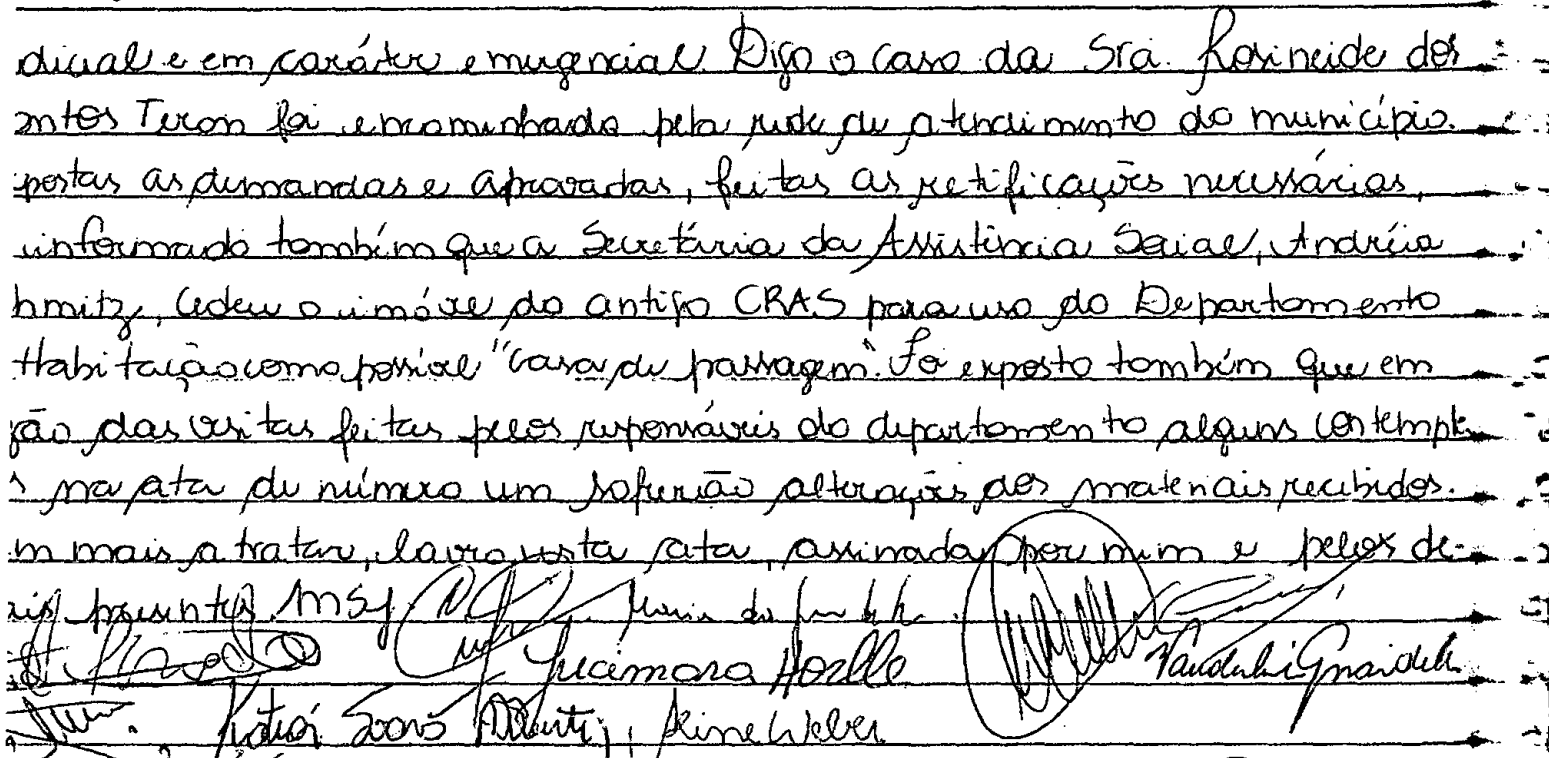 dicial e em caráter emergencial. Digo o caso da Sra. Rosineide dos
antos Teron foi encaminhado pela rede de atendimento do município.
postas as demandas e aprovadas, feitas as retificações necessárias,
informado também que a Secretária da Assistência Social, Andréia
hmitz, cedeu o imóvel do antigo CRAS para uso do Departamento
Habitação como possível "casa de passagem". Foi exposto também que em
ção das visitas feitas pelos responsáveis do departamento alguns contempla
s na ata de número um sofrerão alterações dos materiais recebidos.
m mais a tratar, lavro esta ata, assinada por mim e pelos de-
is presentes. MSJ
Lucimara Hoelle
Aline Weber